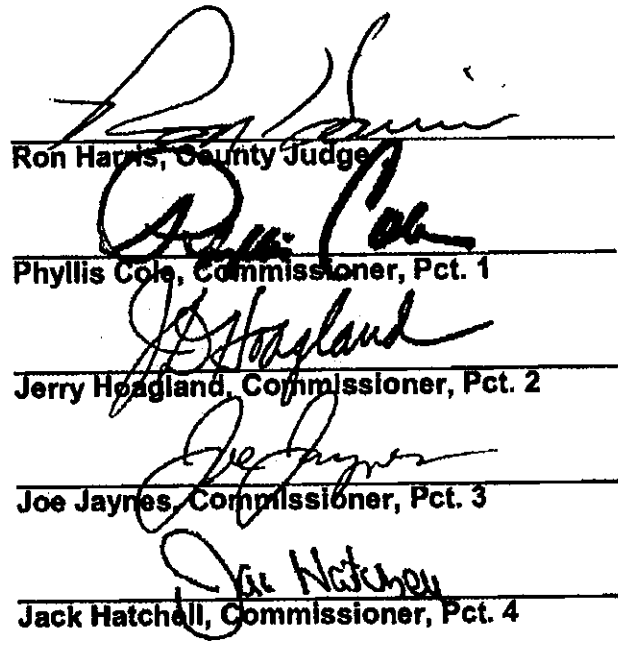 Ron Harris
Ron Harris, County Judge
Phyllis Cole
Phyllis Cole, Commissioner, Pct. 1
JD Hoagland
Jerry Hoagland, Commissioner, Pct. 2
Joe Jaynes
Joe Jaynes, Commissioner, Pct. 3
Jack Hatchell, Commissioner, Pct. 4